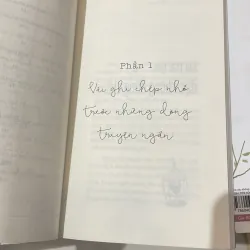 Phần 1
Vài ghi chép nhỏ
trước những dòng
truyện ngắn